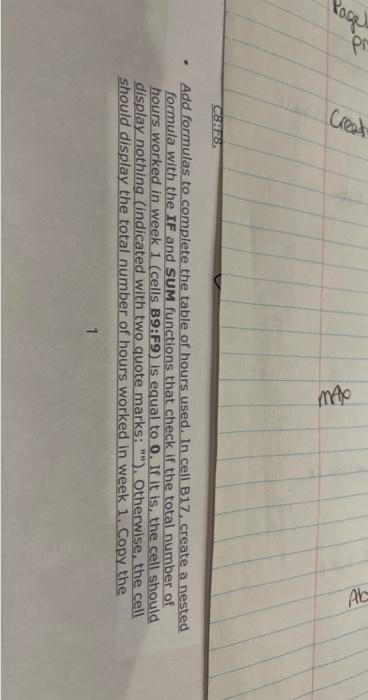 C8:F8.
• Add formulas to complete the table of hours used. In cell B17, create a nested
formula with the IF and SUM functions that check if the total number of
hours worked in week 1 (cells B9:F9) is equal to 0. If it is, the cell should
display nothing (indicated with two quote marks: ""). Otherwise, the cell
should display the total number of hours worked in week 1. Copy the
1
Page
pr
Creat
Ab